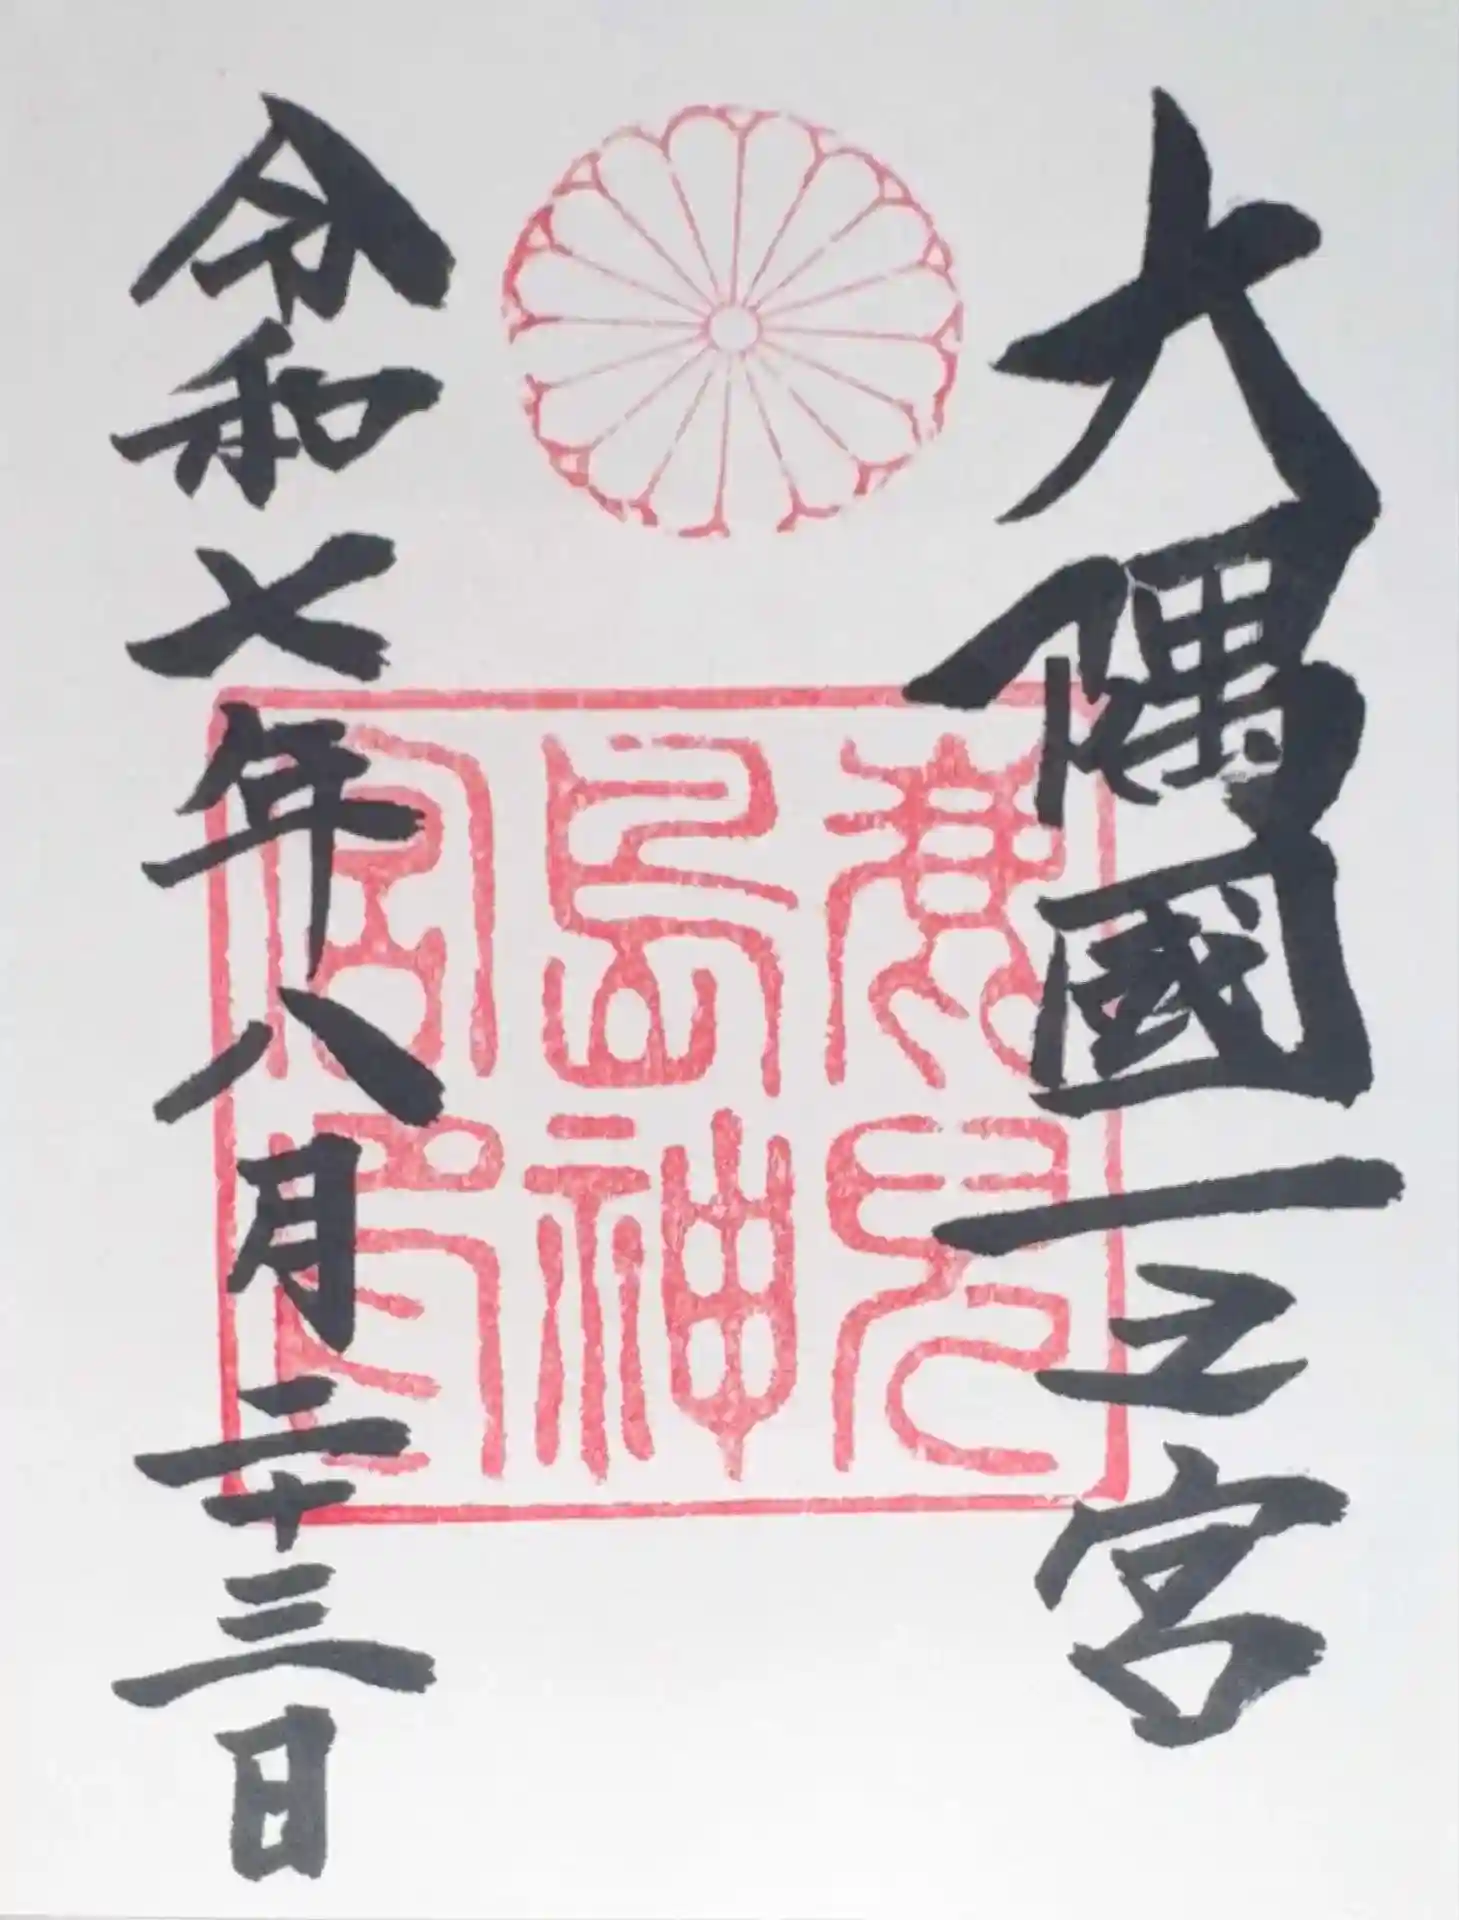 大隅國一之宮
鹿兒
島神
宮
令和七年八月二十三日